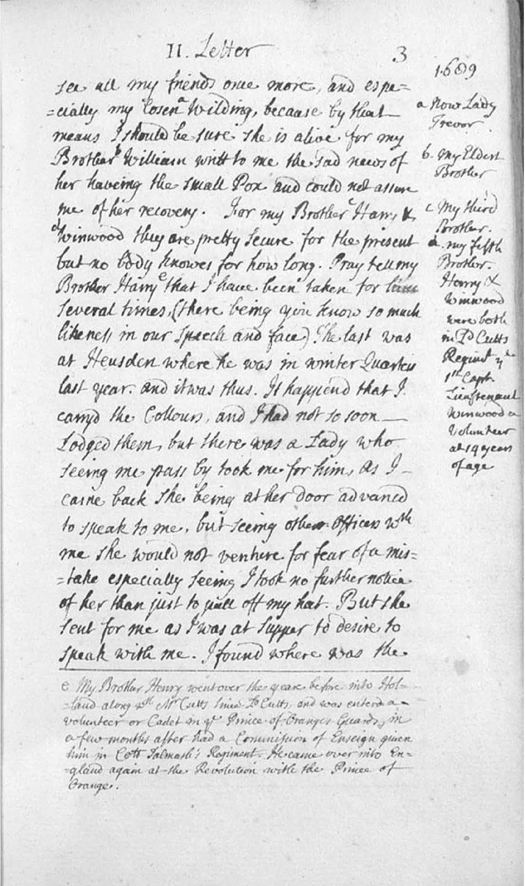 II. Letter
3
see all my friends once more, and espe=
=cially my Cosenᵃ Wilding, because by that
means I should be sure she is alive for my
Brotherᵇ William writt to me the sad news of
her having the small Pox and could not assure
me of her recovery. For my Brotherᶜ Harry &
ᵈWinwood they are pretty secure for the present
but no body knowes for how long. Pray tell my
Brother Harryᵉ that I have been taken for him
several times, (there being you know so much
likeness in our speech and face) The last was
at Heusden where he was in winter Quarters
last year. and it was thus. It happend that I
carryd the Collours, and I had not so soon
Lodged them, but there was a Lady who
seeing me pass by took me for him, as I
came back she being at her door advanced
to speak to me, but seeing other Officers wth
me she would not venture for fear of a mis=
=take especially seeing I took no further notice
of her than just to pull off my hat. But she
sent for me as I was at supper to desire to
speak with me. I found where was the
1689
a Now Lady
Trevor.
b. my Eldest
Brother
c My third
Brother.
d. my fifth
Brother.
Henry &
Winwood
were both
in Ld Cutts
Regimt ye
1st Capt.
Lieftenant
Winwood a
Volunteer
at 19 years
of age
e My Brother Henry went over the year before into Hol=
=land along wth Mr Cutts since Ld Cutts, and was enterd a
volunteer or Cadet in ye Prince of Oranges Guards, in
a few months after had a Commission of Ensign given
him in Coll Talmash's Regiment. He came over into En=
=gland again at the Revolution with the Prince of
Orange.